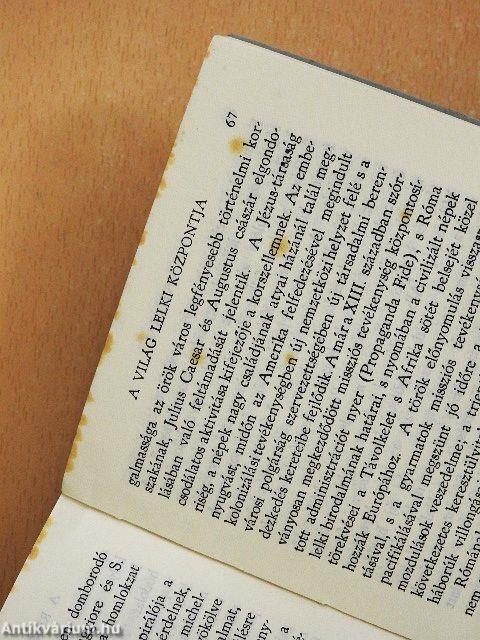 A VILÁG LELKI KÖZPONTJA
67
galmassága az örök város legfényesebb történelmi kor-
szakának, Július Caesar és Augustus császár elgondo-
lásában való feltámadását jelentik. A Jézus-társaság
csodálatos aktivitása kifejezője a korszellemnek. Az embe-
riség, a népek nagy családjának atyai házánál talál meg-
nyugvást, midőn az Amerika felfedezésével megindult
kolonizálási tevékenységben új nemzetközi helyzet felé s a
városi polgárság szervezettségében új társadalmi beren-
dezkedés kereteibe fejlődik. A már a XIII. században szór-
ványosan megkezdődött missziós tevékenység központosí-
tott adminisztrációt nyer (Propaganda Fide), s Róma
lelki birodalmának határai, s nyomában a civilizált népek
törekvései a Távolkelet s Afrika sötét belsejét közel
hozzák Európához. A török előnyomulás
tásával, s a gyarmatok missziós
pacifikálásával megszűnt jó időre a
mozdulások veszedelme; a
következetes
háborúk
Rómának
nem
domborodó
és S.
a
michel-
Antikvárium.hu